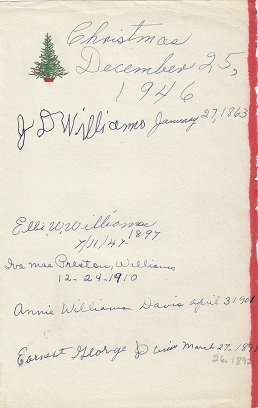 Christmas
December 25,
1946
J D Williams January 27, 1863
Elli W. Williams
7/11/47. 1897
Iva Mae Preston, Williams
12-24-1910
Annie Williams Davis April 3 1901
Earnest George Davis March 27, 1892
26, 1892